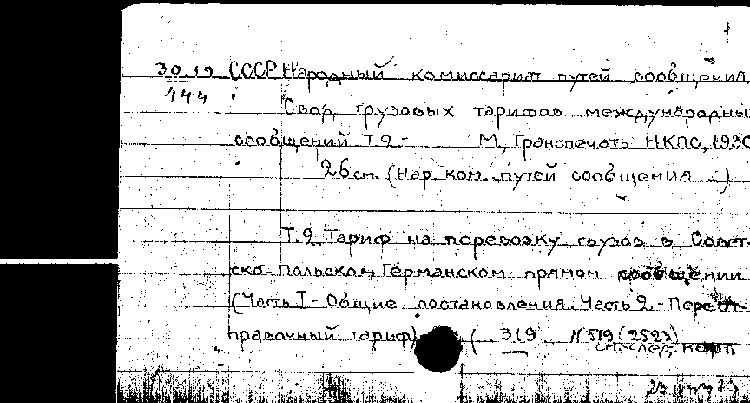 30.19 СССР Народный комиссариат путей сообщения.
144
Свод грузовых тарифов международны
сообщений Т.2.- М., Транспечать НКПС, 1930
26 см. (Нар. ком. путей сообщения ...)
Т.2. Тариф на перевозку грузов в Совет-
ско-польском, Германском прямом сообщении
(Часть I - Общие постановления. Часть 2.-
правочный тариф) ( 319 № 519 (2523)
см. след. карт